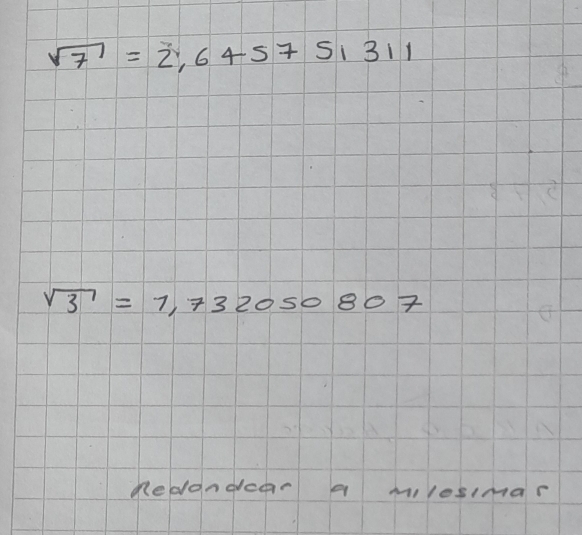 √7 = 2,645751311
√3 = 1,732050807
Redondear a milesimas